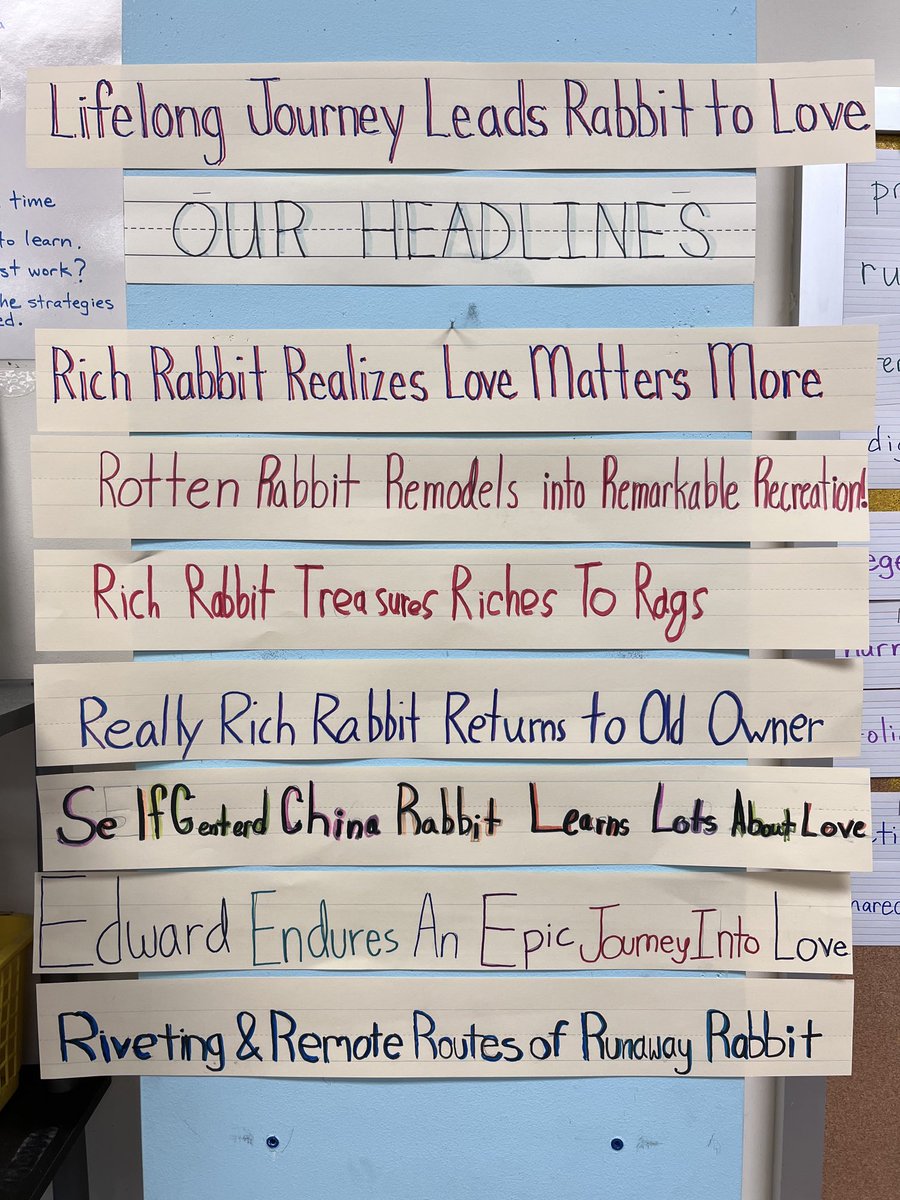 time
to learn.
work?
strategies
Lifelong Journey Leads Rabbit to Love
OUR HEADLINES
Rich Rabbit Realizes Love Matters More
Rotten Rabbit Remodels into Remarkable Recreation!
Rich Rabbit Treasures Riches To Rags
Really Rich Rabbit Returns to Old Owner
Self Genterd China Rabbit Learns Lots About Love
Edward Endures An Epic Journey Into Love
Riveting & Remote Routes of Runaway Rabbit